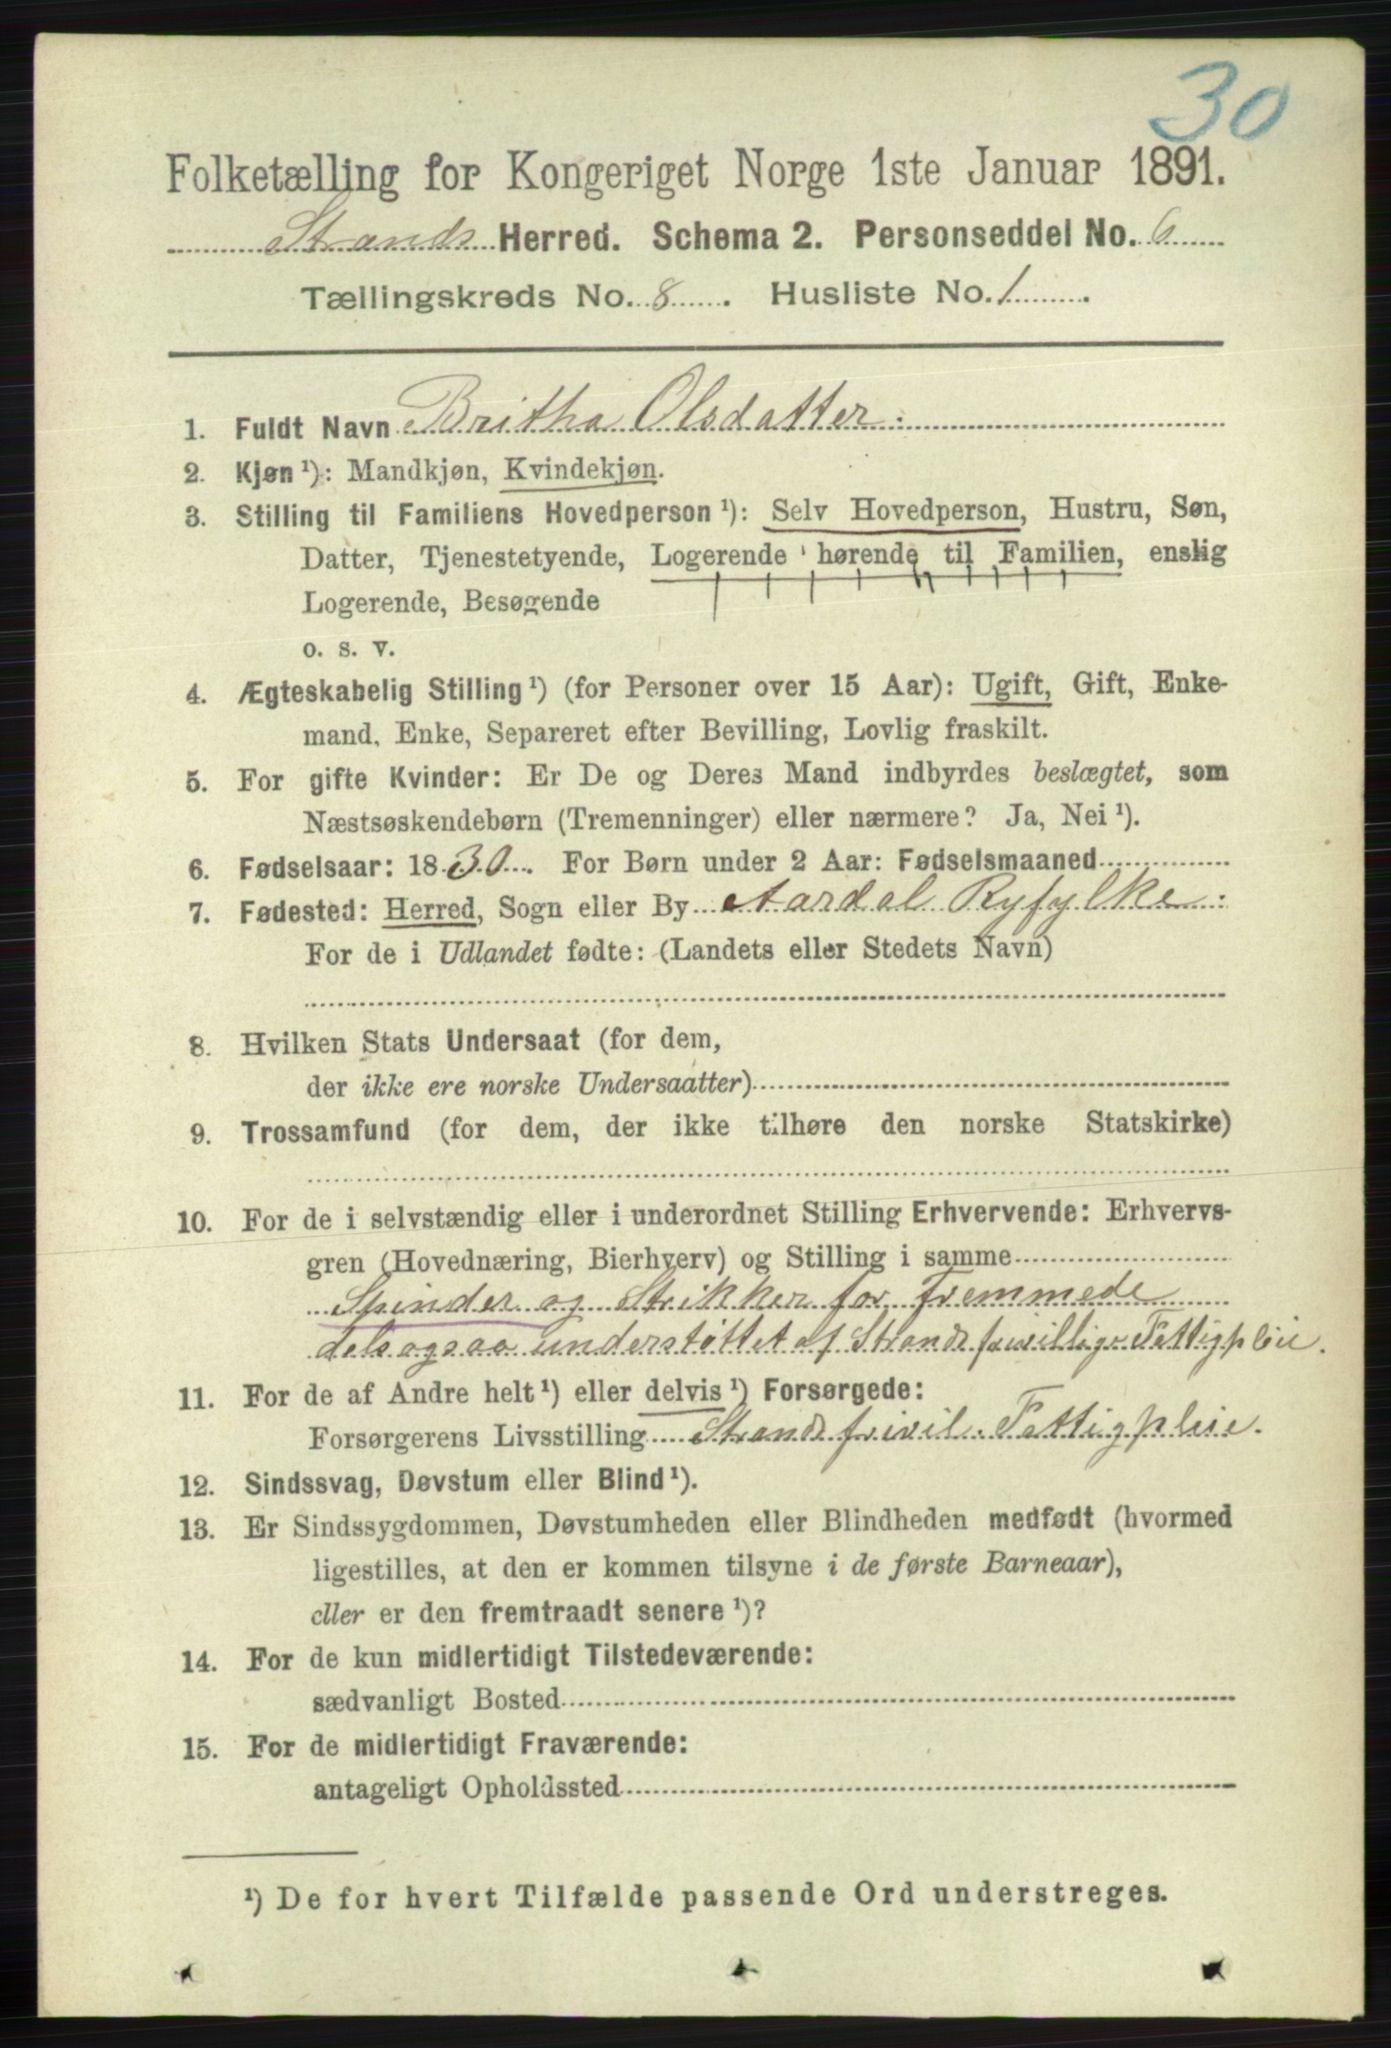 30
Folketælling for Kongeriget Norge 1ste Januar 1891.
Strands Herred. Schema 2. Personseddel No. 6
Tællingskreds No. 8. Husliste No. 1.
1. Fuldt Navn Britha Olsdatter.
2. Kjøn ¹): Mandkjøn, Kvindekjøn.
3. Stilling til Familiens Hovedperson ¹): Selv Hovedperson, Hustru, Søn,
Datter, Tjenestetyende, Logerende hørende til Familien, enslig
Logerende, Besøgende
o. s. v.
4. Ægteskabelig Stilling ¹) (for Personer over 15 Aar): Ugift, Gift, Enke-
mand, Enke, Separeret efter Bevilling, Lovlig fraskilt.
5. For gifte Kvinder: Er De og Deres Mand indbyrdes beslægtet, som
Næstsøskendebørn (Tremenninger) eller nærmere? Ja, Nei ¹).
6. Fødselsaar: 1830. For Børn under 2 Aar: Fødselsmaaned
7. Fødested: Herred, Sogn eller By Aardal Ryfylke.
For de i Udlandet fødte: (Landets eller Stedets Navn)
8. Hvilken Stats Undersaat (for dem,
der ikke ere norske Undersaatter)
9. Trossamfund (for dem, der ikke tilhøre den norske Statskirke)
10. For de i selvstændig eller i underordnet Stilling Erhvervende: Erhvervs-
gren (Hovednæring, Bierhverv) og Stilling i samme
Spinder og Strikker for Fremmede
dels ogsaa understøttet af Strands frivillige Fattigpleie.
11. For de af Andre helt ¹) eller delvis ¹) Forsørgede:
Forsørgerens Livsstilling Strands frivil. Fattigpleie.
12. Sindssvag, Døvstum eller Blind ¹).
13. Er Sindssygdommen, Døvstumheden eller Blindheden medfødt (hvormed
ligestilles, at den er kommen tilsyne i de første Barneaar),
eller er den fremtraadt senere ¹)?
14. For de kun midlertidigt Tilstedeværende:
sædvanligt Bosted
15. For de midlertidigt Fraværende:
antageligt Opholdssted
¹) De for hvert Tilfælde passende Ord understreges.